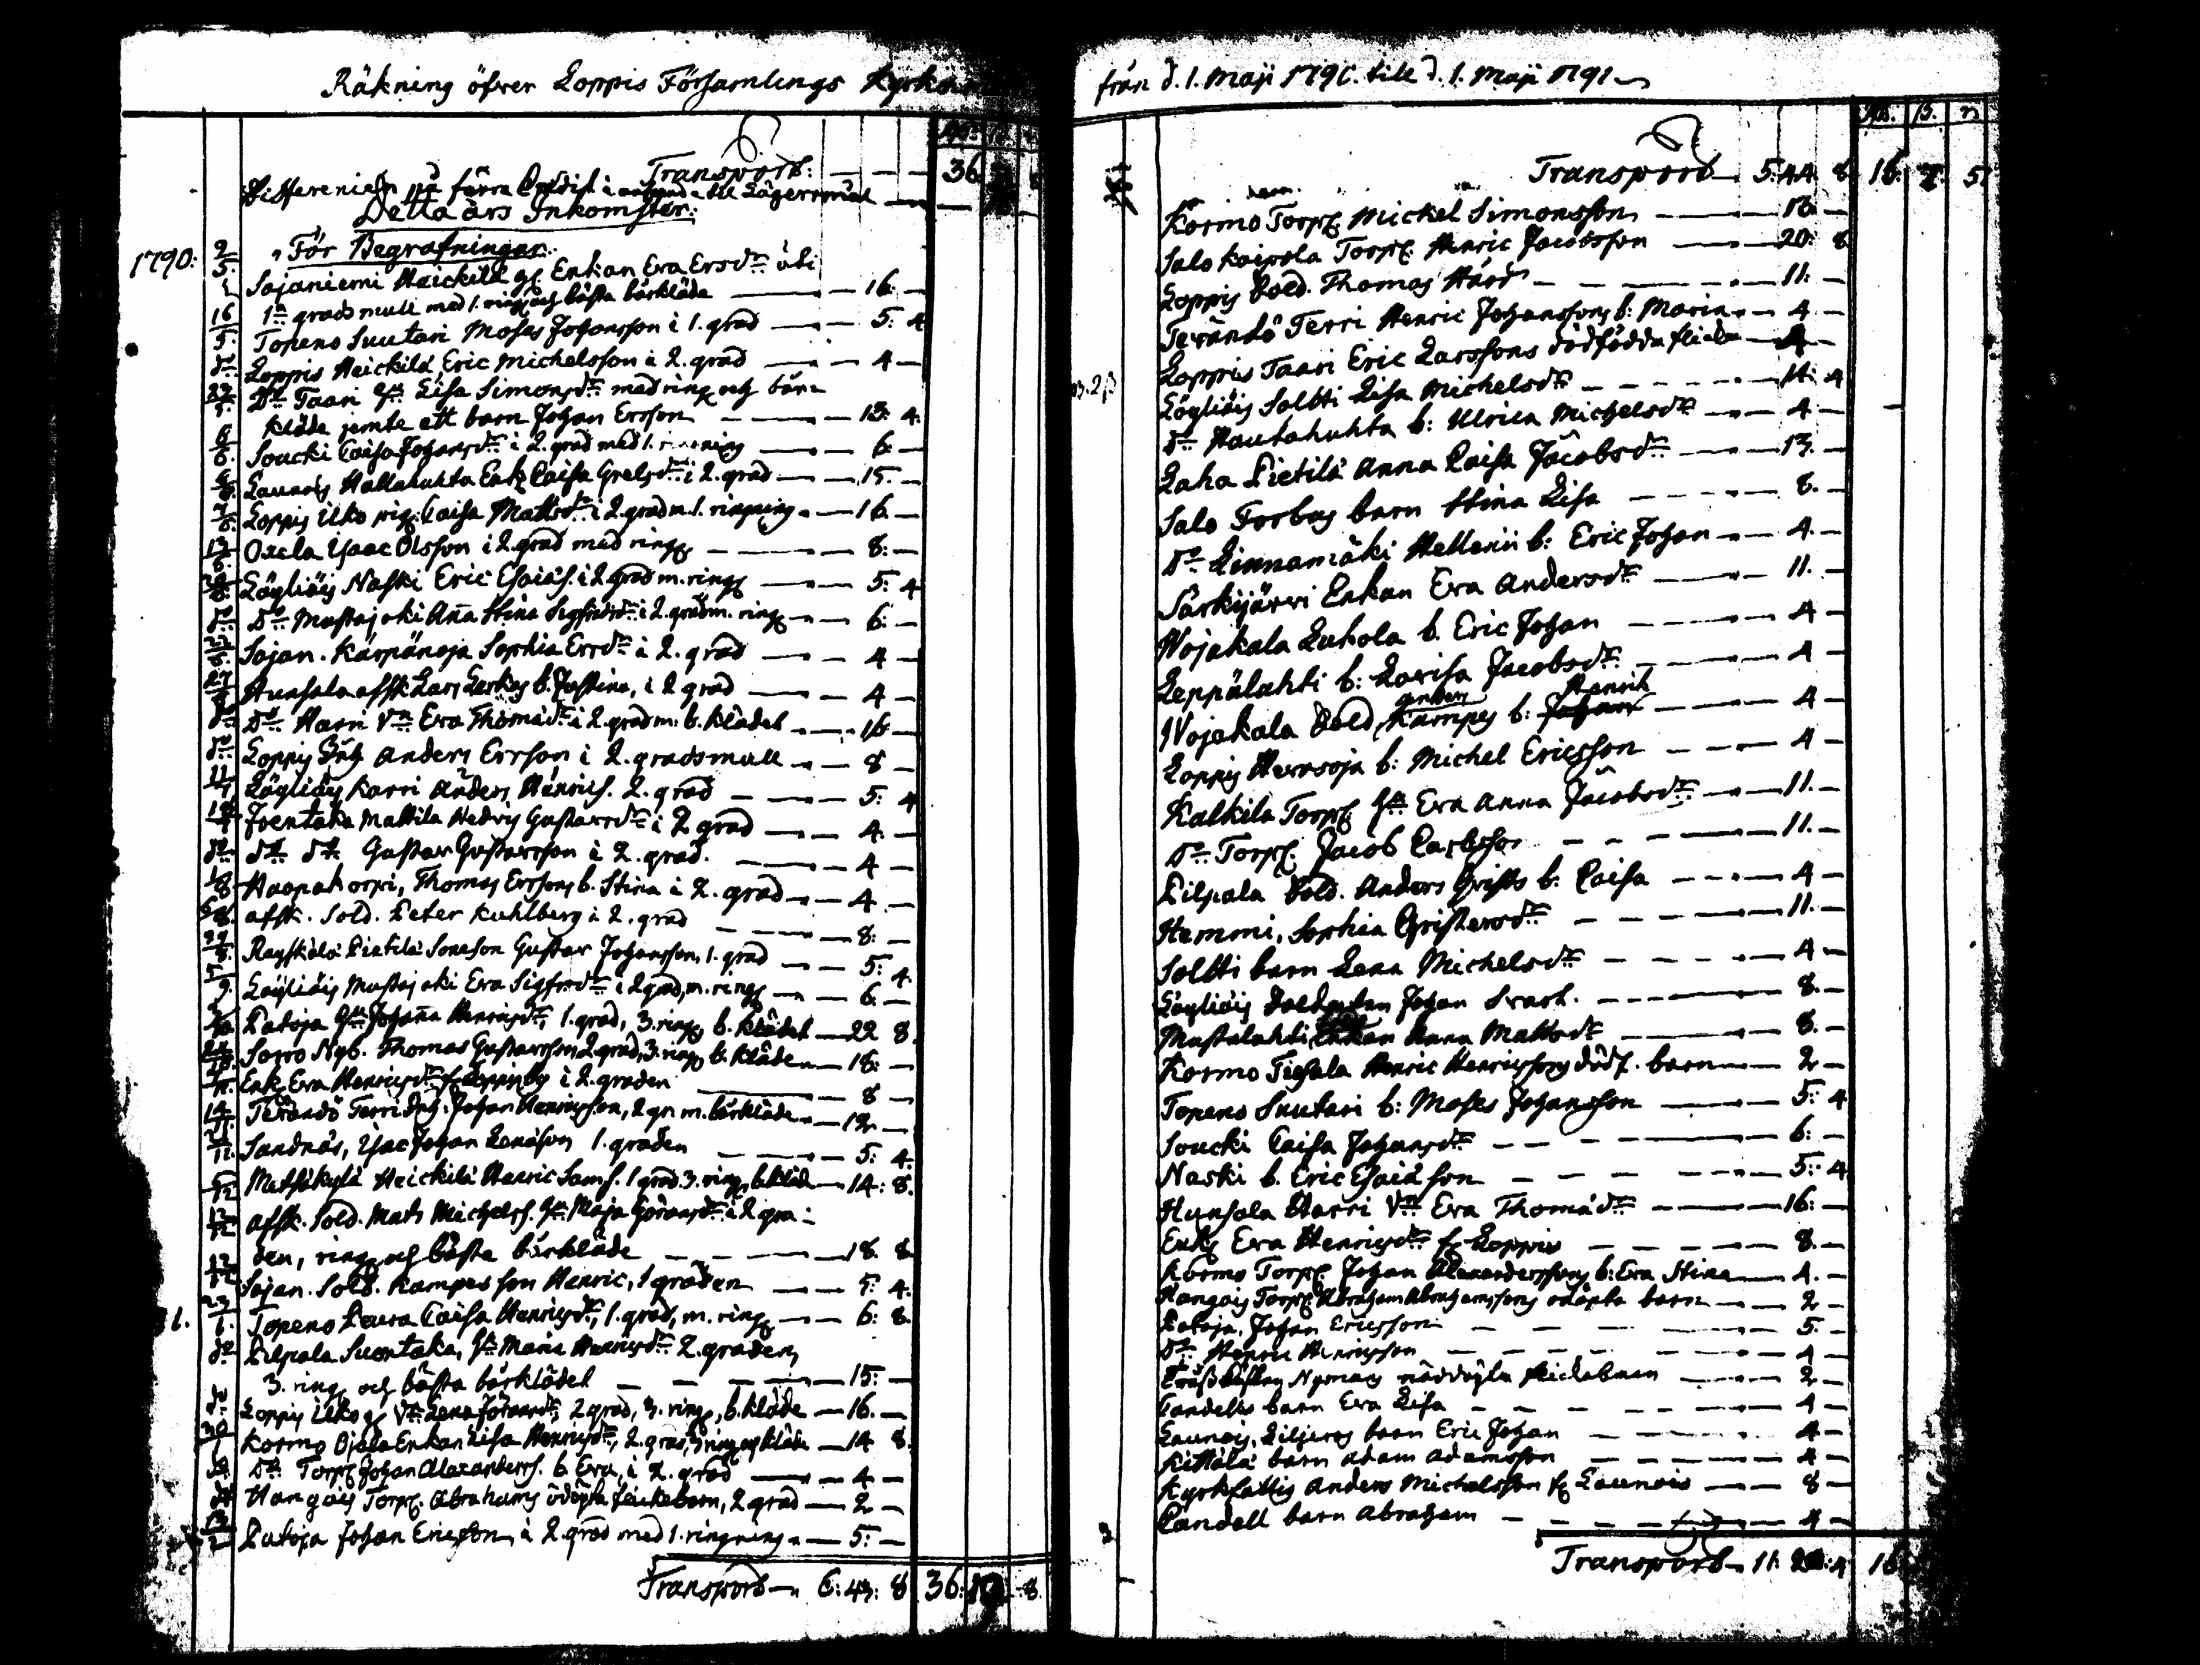 Räkning öfver Loppis Församlings
Rdr.
Transport: — — — 36
på förra
Detta års Inkomster:
1790: 2/5. För Begrafningar.
Sajaniemi Heickilä Enkan Eva Ersdr. uti
1a grads mull med 1. ringn och bästa bårkläde — — 16. —
16/5. Topeno Suutari Moses Johansson i 1. grad — — 5: 4
do Loppis Heickilä Eric Michelsson i 2. grad — — 4 —
Do Taari Lisa Simonsdr. med ring och bår-
kläde jemte ett barn Johan Ersson — — 13: 4.
Soucki Caisa Johansdr. i 2. grad med 1. ringning — — 6: —
Launois Hallahuhta Enk. Caisa Grelsdr. i 2. grad — — 15. —
Loppis Uko pig. Caisa Mattsdr. i 2. grad m. 1. ringning — 16 —
13/6. Oxela Isaac Olsson i 2. grad med ring — — 8: —
Läyliäis Naski Eric Esaiæs. i 2. grad m. ring — — 5: 4
do Do Mustajoki Anna Stina Sigfridsdr. i 2. grad m. ring — 6: —
Sajan. Kärpänoja Sophia Ersdr. i 2. grad — — 4 —
Hunsala afsk. Lars Lerkas b. Justina, i 2 grad — — 4 —
do Do Harri Vn Eva Thomædr. i 2. grad m: b. klädet — 16 —
do Loppis Anders Ersson i 2. gradsmull — 8 —
Läyliäis Karri Anders Henrics. 2. grad — — 5: 4
Joentaka Mattila Hedvig Gustavsdr. i 2 grad — — 4. —
do do do Gustav Gustavsson i 2. grad. — — 4 —
1/8 Haapakorpi, Thomas Erssons b. Stina i 2. grad — 4. —
afsk. Sold. Peter Kuhlberg i 2. grad — — 8: —
Räyskälä Pietilä Soneson Gustav Johansson, 1. grad — — 5: 4.
5/9 Läyliäis Mustajoki Eva Sigfrsdr. i 2 grad, m. ring — 6. —
Patoja Johanna Henricsdr, 1. grad, 3. ring, b. klädet — 22 8
Sorro Nyb. Thomas Gustavsson 2 grad, 3. ring b. kläde — 18: —
Enk. Eva Henricsdr. f. Loppis by i 2. graden — 8 —
14/11 Terändö Terri Johan Henricsson, 2 gr. m. bårkläde — 12 —
Sandnäs, Isac Johan Lenæson 1. graden — — 5: 4.
Metsäkylä Heickilä Henric Sams. 1 grad 3. ring, b. kläde — 14: 8.
12/12 afsk. Sold. Mats Michels. Maja Göransdr. i 2 gra-
den, ring och bästa bårkläde — — 18. 8
Sajan. Sold. Kampes son Henric, 1 graden — 5: 4.
91. 23/1. Topeno Laura Caisa Henricsdr, 1. grad, m. ring — — 6: 8.
do Pilpala Suontaka, Maria Henricsdr. 2. graden,
3. ring och bästa bårklädet — — 15: —
do Loppis Uko Vn Lena Göransdr, 2 grad, 3. ring, b. kläde — 16. —
30/1 Kormo Ojala Enkan Lisa Henricsdr, 2. grad, 3 ring och kläde — 14 8.
do Do Torp. Johan Alexanders. b. Eva, i 2. grad — — 4 —
do Hangois Torp. Abrahams odöpta flickebarn, 2 grad — 2 —
Patoja Johan Ericsson i 2. grad med 1. ringning — 5: —
Transport — 6: 43: 8 36: 8.
från d. 1. Maji 1790. till d. 1. Maji 1791.
Transport — 5: 44 8 16: 7. 5
Kormo Torp. Michel Simonsson — — 16 —
Salo Kaipola Torp. Henric Jacobsson — — 20: 8
Loppis Sold. Thomas Hård — — 11: —
Terändö Terri Henric Johanssons b: Maria — — 4 —
Loppis Taari Eric Larssons dödfödda flicka — 4 —
Läyliäis Soltti Lisa Michelsdr. — — 14: 4
Do Hautahuhta b: Ulrica Michelsdr. — — 4 —
Laha Pietilä Anna Caisa Jacobsdr. — — 13. —
Salo Forbus barn Stina Lisa — — 8. —
Do Linnamäki Hellenii b: Eric Johan — — 4. —
Särkijärvi Enkan Eva Andersdr. — — 11. —
Wojakala Luhola b. Eric Johan — — 4 —
Leppälahti b: Lovisa Jacobsdr. — — 4 —
Wojakala Sold. Kampes b: Henric — — 4 —
Loppis Hervsoja b: Michel Ericsson — — 4 —
Kalkila Torp. Eva Anna Jacobsdr. — — 11. —
Do Torp. Jacob Carlsson — — 11. —
Pilpala Sold. Anders Grists b. Caisa — — 4 —
Hemmi, Sophia Christersdr. — — 11. —
Soltti barn Lena Michelsdr. — — 4 —
Läyliäis Soldaten Johan Svart. — — 8. —
Mustalahti Enkan Anna Mattsdr. — — 8. —
Kormo Tiesala Henric Henricssons dödf. barn — — 2 —
Topeno Suutari b: Moses Johansson — — 5: 4
Soucki Caisa Johansdr. — — 6: —
Naski b. Eric Esaiæson — — 5: 4
Hunsala Harri Vn Eva Thomædr. — — 16: —
Enk. Eva Henricsdr. f. Loppis — — 8. —
Kormo Torp. Johan Alexanderssons b: Eva Stina — 4. —
Hangois Torp. Abraham Abrahamssons odöpta barn — — 2 —
Patoja, Johan Ericsson — — 5. —
Do Henric Henricsson — — 4 —
Nymans nöddöpta flickebarn — — 2 —
Tandells barn Eva Lisa — — 4 —
Launois, Liljeros barn Eric Johan — — 4 —
Kittälä barn Adam Adamsson — — 4 —
Kyrkfattig Anders Michelsson f. Launois — — 8 —
Tandell barn Abraham — — 4 —
Transport — 11: 4 16